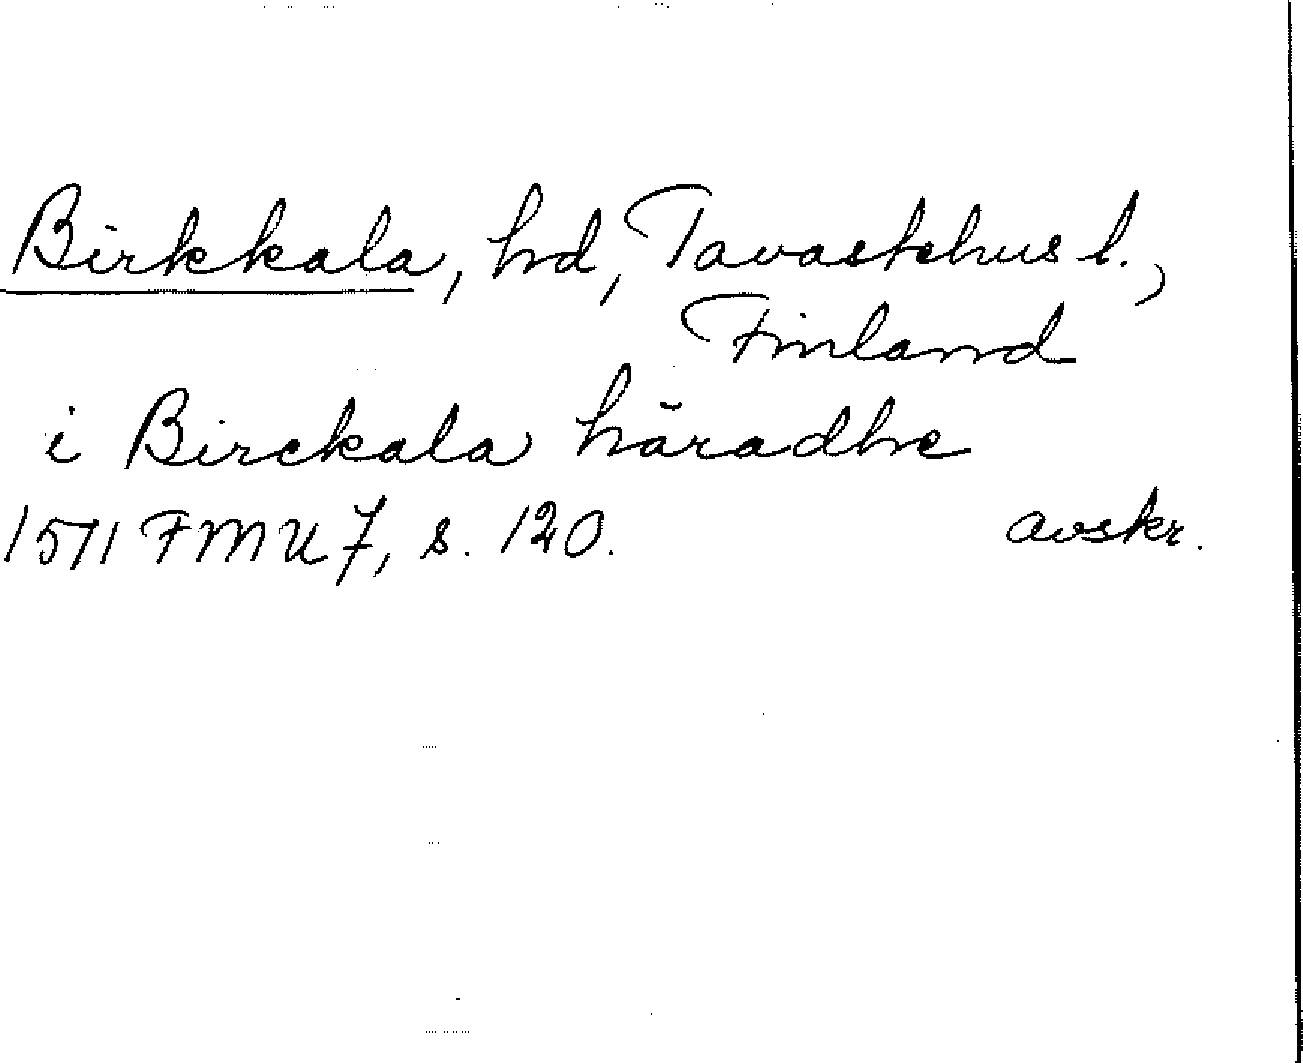 Birkkala, hd, Tavastehus l.,
Finland
i Birckala häradhe
1571 FMU 7, s. 120. avskr.